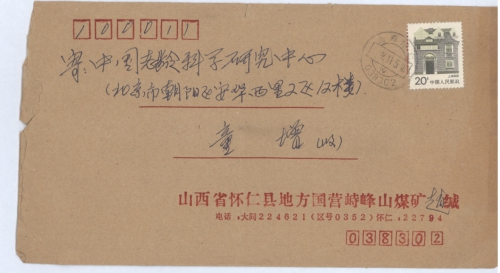 100011
20分 中国人民邮政
寄:中国老龄科学研究中心
(北京市朝阳区安华西里二区12楼)
童 增 (收)
山西省怀仁县地方国营峙峰山煤矿赵
电话:大同224621(区号0352)怀仁:22794
038302